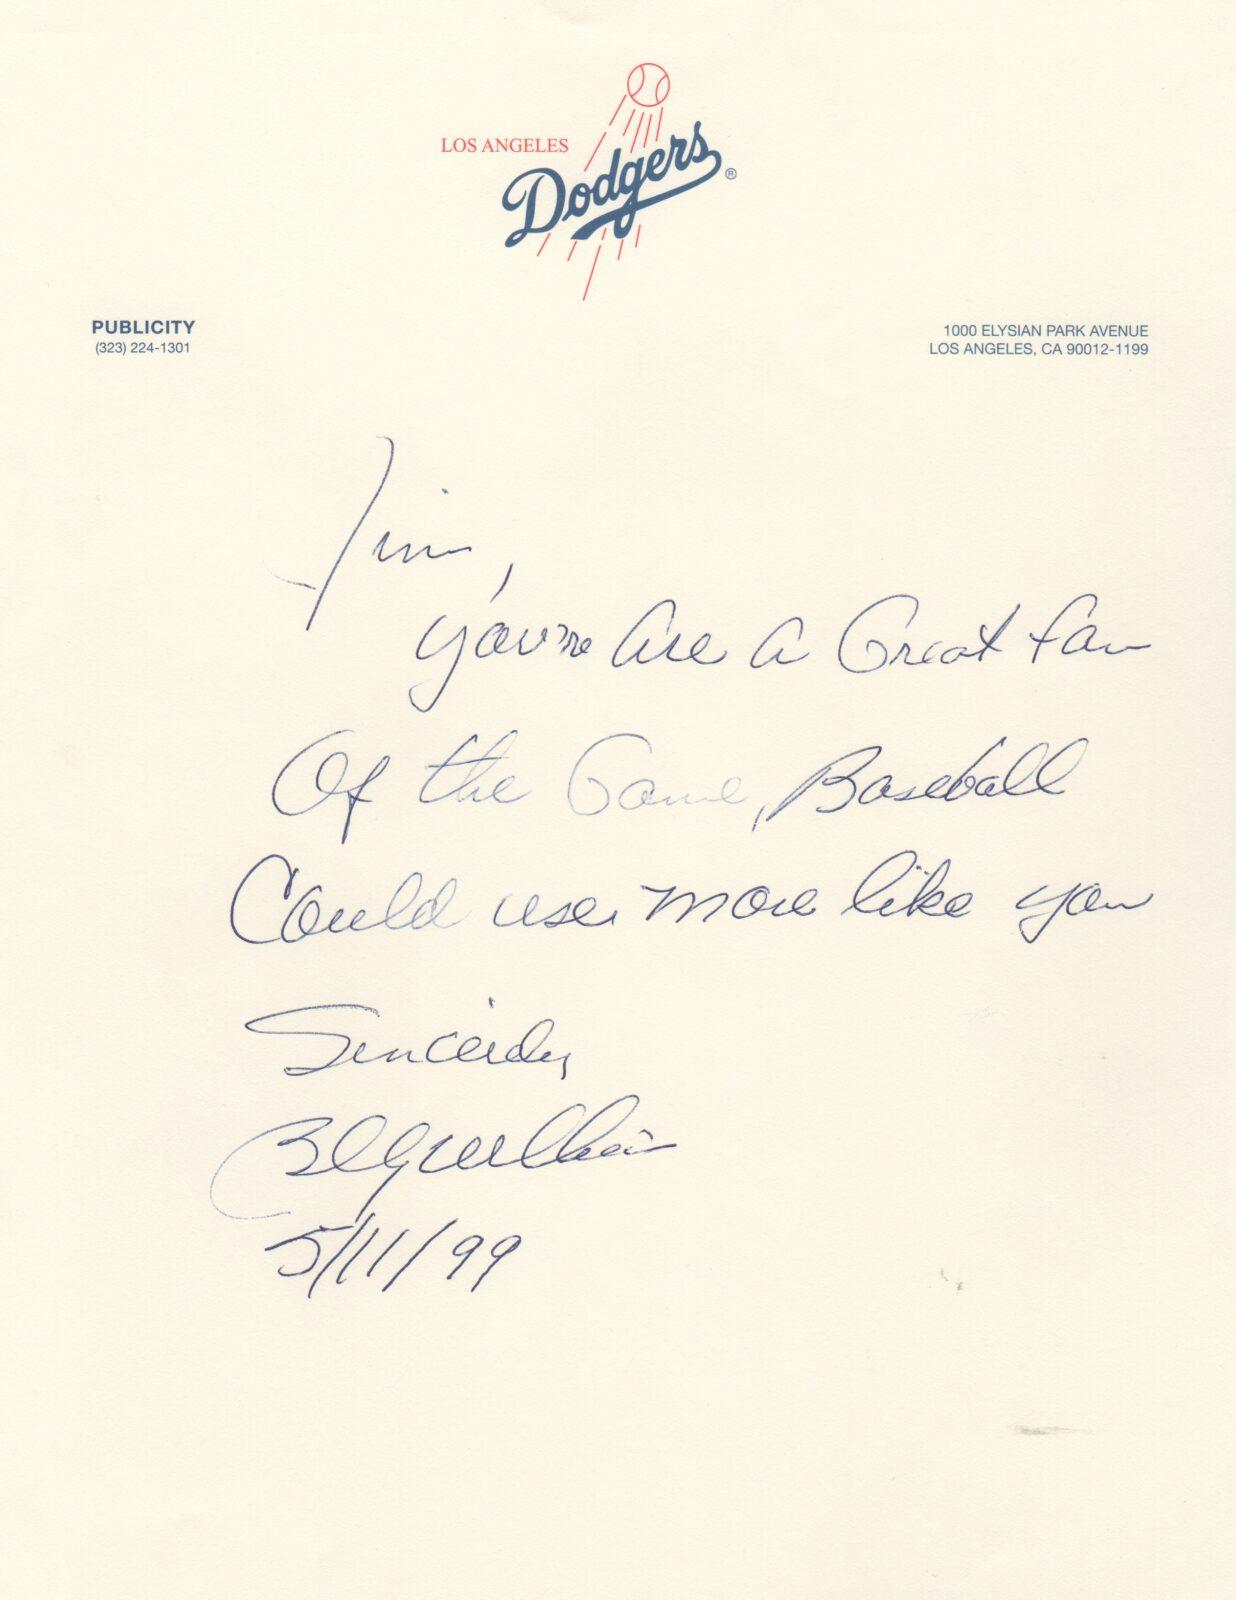 LOS ANGELES
Dodgers®
PUBLICITY
(323) 224-1301
1000 ELYSIAN PARK AVENUE
LOS ANGELES, CA 90012-1199
Jim,
you're Are A Great fan
Of the Game, Baseball
Could use more like you
Sincerely,
5/11/99